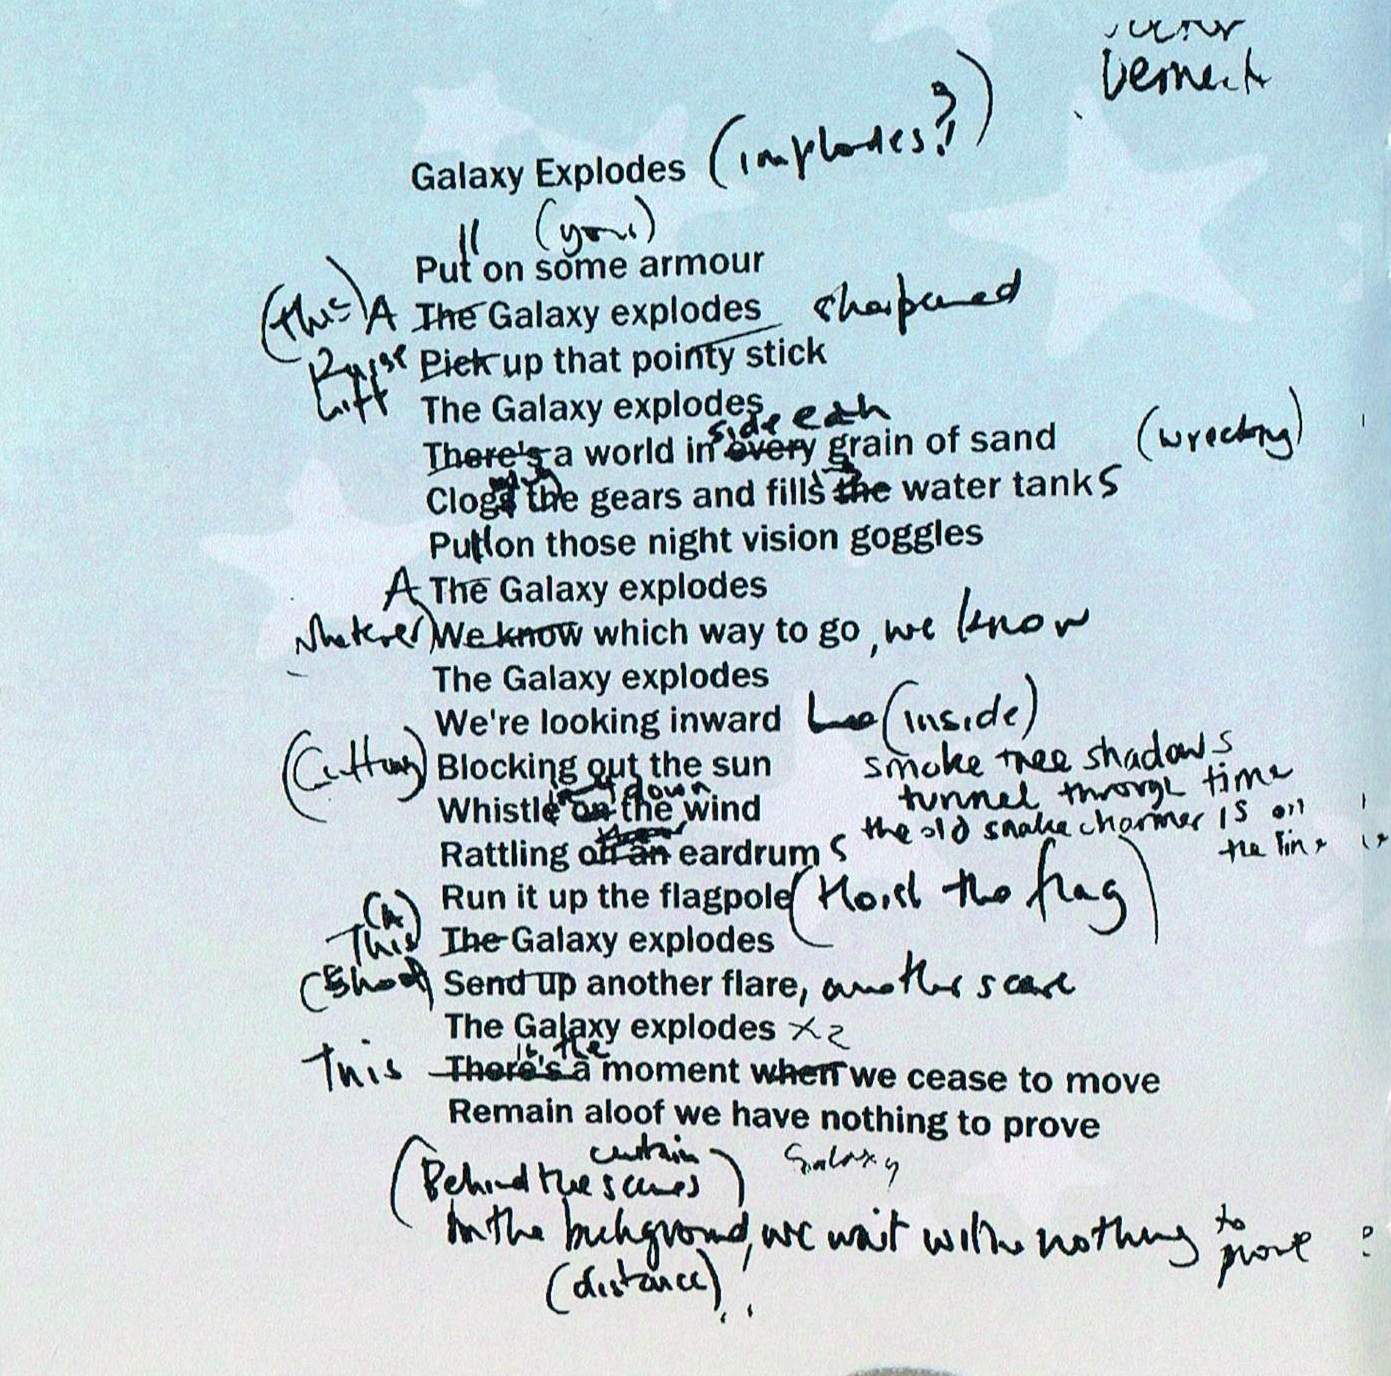 Galaxy Explodes (implodes?!)
(your)
Put on some armour
(this) A The Galaxy explodes sharpened
Raise Pick up that pointy stick
Lift The Galaxy explodes
side each
There's a world in every grain of sand (wrecking)
Clogs the gears and fills the water tanks
Put on those night vision goggles
A The Galaxy explodes
Whatever) We know which way to go, we know
The Galaxy explodes
We're looking inward (inside)
(Cutting) Blocking out the sun smoke tree shadows
down tunnel through time
Whistle on the wind the old snake charmer is on
Rattling off an eardrums the line
Run it up the flagpole (Hoist the flag)
(A)
This The Galaxy explodes
(Shoot) Send up another flare, another scare
The Galaxy explodes x2
is the
This There's a moment when we cease to move
Remain aloof we have nothing to prove
curtain Galaxy
(Behind the scenes)
In the background, we wait with nothing to prove
(distance)